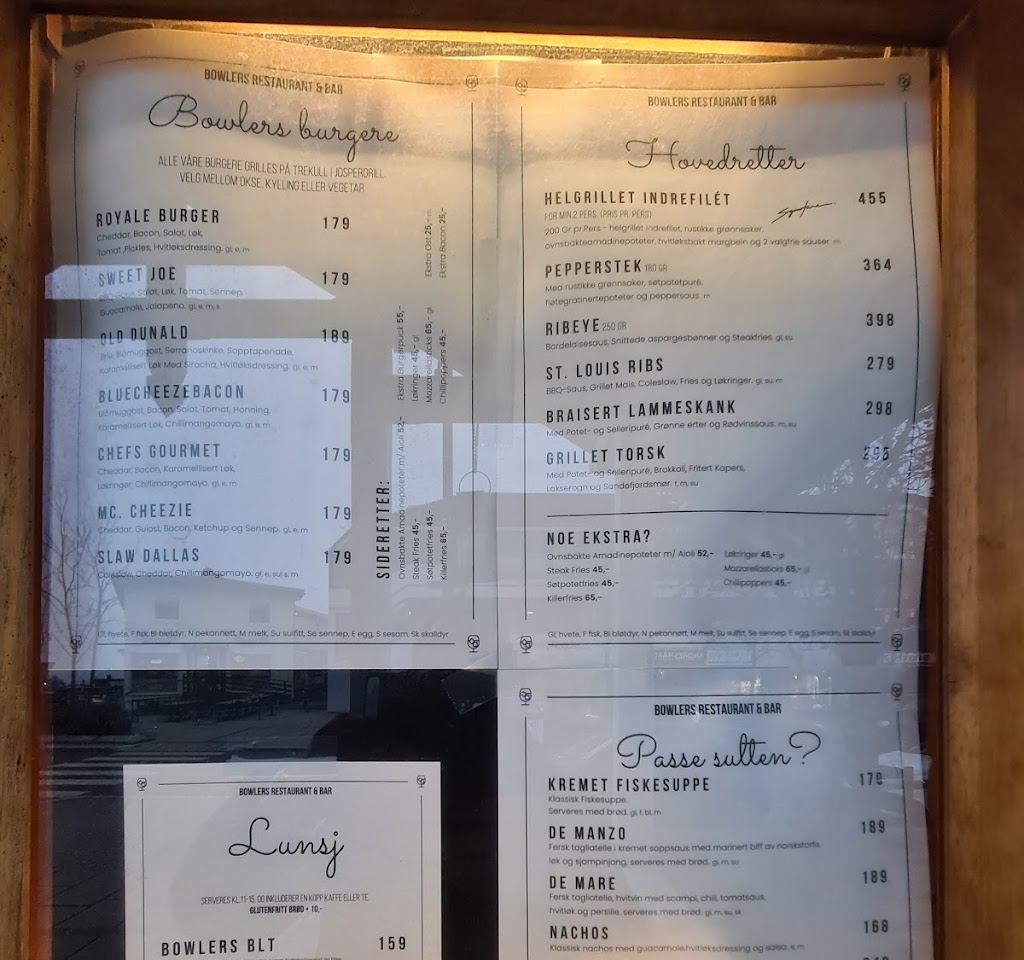 BOWLERS RESTAURANT & BAR
Bowlers burgere
ALLE VÅRE BURGERE GRILLES PÅ TREKULL I JOSPERGRILL.
VELG MELLOM OKSE, KYLLING ELLER VEGETAR
ROYALE BURGER 179
Cheddar, Bacon, Salat, Løk,
Tomat, Pickles, Hvitløksdressing. gl, e, m
SWEET JOE 179
Salat, Løk, Tomat, Sennep,
Guacamole, Jalapeno. gl, e, m, s
OLD DUNALD 189
Brie, Blåmuggost, Serranoskinke, Sopptapenade,
Karamellisert Løk Med Siracha, Hvitløksdressing. gl, e, m
BLUECHEEZEBACON 179
Blåmuggost, Bacon, Salat, Tomat, Honning,
Karamellisert Løk, Chillimangomayo. gl, e, m
CHEFS GOURMET 179
Cheddar, Bacon, Karamellisert Løk,
Løkringer, Chillimangomayo. gl, e, m
MC. CHEEZIE 179
Cheddar, Gulost, Bacon, Ketchup og Sennep. gl, e, m
SLAW DALLAS 179
Coleslaw, Cheddar, Chillimangomayo. gl, e, su, s, m
SIDERETTER:
Ovnsbakte Amadinepoteter m/ Aioli 52,-
Steak Fries 45,-
Søtpotetfries 45,-
Killerfries 65,-
Ekstra Burgerpuck 55,-
Løkringer 45,- gl
Mozzarellasticks 65,- gl
Chillipoppers 45,-
Ekstra Ost 25,- m
Ekstra Bacon 25,-
Gl, hvete, F fisk, Bl bløtdyr, N pekannøtt, M melk, Su sulfitt, Se sennep, E egg, S sesam, Sk skalldyr
BOWLERS RESTAURANT & BAR
Hovedretter
HELGRILLET INDREFILÉT 455
FOR MIN.2 PERS. (PRIS PR. PERS)
200 Gr pr.Pers - helgrillet indrefilet, rustikke grønnsaker,
ovnsbakteamadinepoteter, hvitløksbakt margbein og 2 valgfrie sauser. m
PEPPERSTEK 180 GR 364
Med rustikke grønnsaker, søtpotetpuré,
fløtegratinertepoteter og peppersaus. m
RIBEYE 250 GR 398
Bordelaisesaus, Snittede aspargesbønner og Steakfries. gl, su
ST. LOUIS RIBS 279
BBQ-Saus, Grillet Mais, Coleslaw, Fries og Løkringer. gl, su, m
BRAISERT LAMMESKANK 298
Med Potet- og Selleripuré, Grønne erter og Rødvinssaus. m, su
GRILLET TORSK
Med Potet- og Selleripuré, Brokkoli, Fritert Kapers,
Lakserogn og Sandefjordsmør. f, m, su
NOE EKSTRA?
Ovnsbakte Amadinepoteter m/ Aioli 52,- Løkringer 45,- gl
Steak Fries 45,- Mozzarellasticks 65,- gl
Søtpotetfries 45,- Chillipoppers 45,-
Killerfries 65,-
Gl, hvete, F fisk, Bl bløtdyr, N pekannøtt, M melk, Su sulfitt, Se sennep, E egg, S sesam, Sk skalldyr
BOWLERS RESTAURANT & BAR
Passe sulten?
KREMET FISKESUPPE 178
Klassisk Fiskesuppe.
Serveres med brød. gl, f, bl, m
DE MANZO 189
Fersk tagliatelle i kremet soppsaus med marinert biff av norskstorfe,
løk og sjampinjong, serveres med brød. gl, m, su
DE MARE 189
Fersk tagliatelle, hvitvin med scampi, chili, tomatsaus,
hvitløk og persille, serveres med brød. gl, m, su, sk
NACHOS 168
Klassisk nachos med guacamole, hvitløksdressing og salsa. e, m
BOWLERS RESTAURANT & BAR
Lunsj
SERVERES KL. 11-15, OG INKLUDERER EN KOPP KAFFE ELLER TE.
GLUTENFRITT BRØD + 10,-
BOWLERS BLT 159